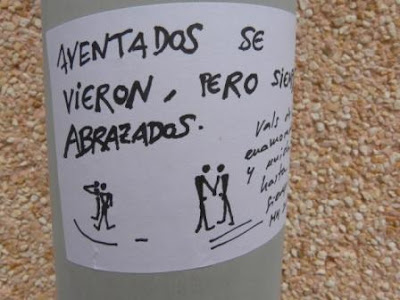 AVENTADOS SE
VIERON, PERO SIEM
ABRAZADOS.
Vals de
enamora
y
hasta